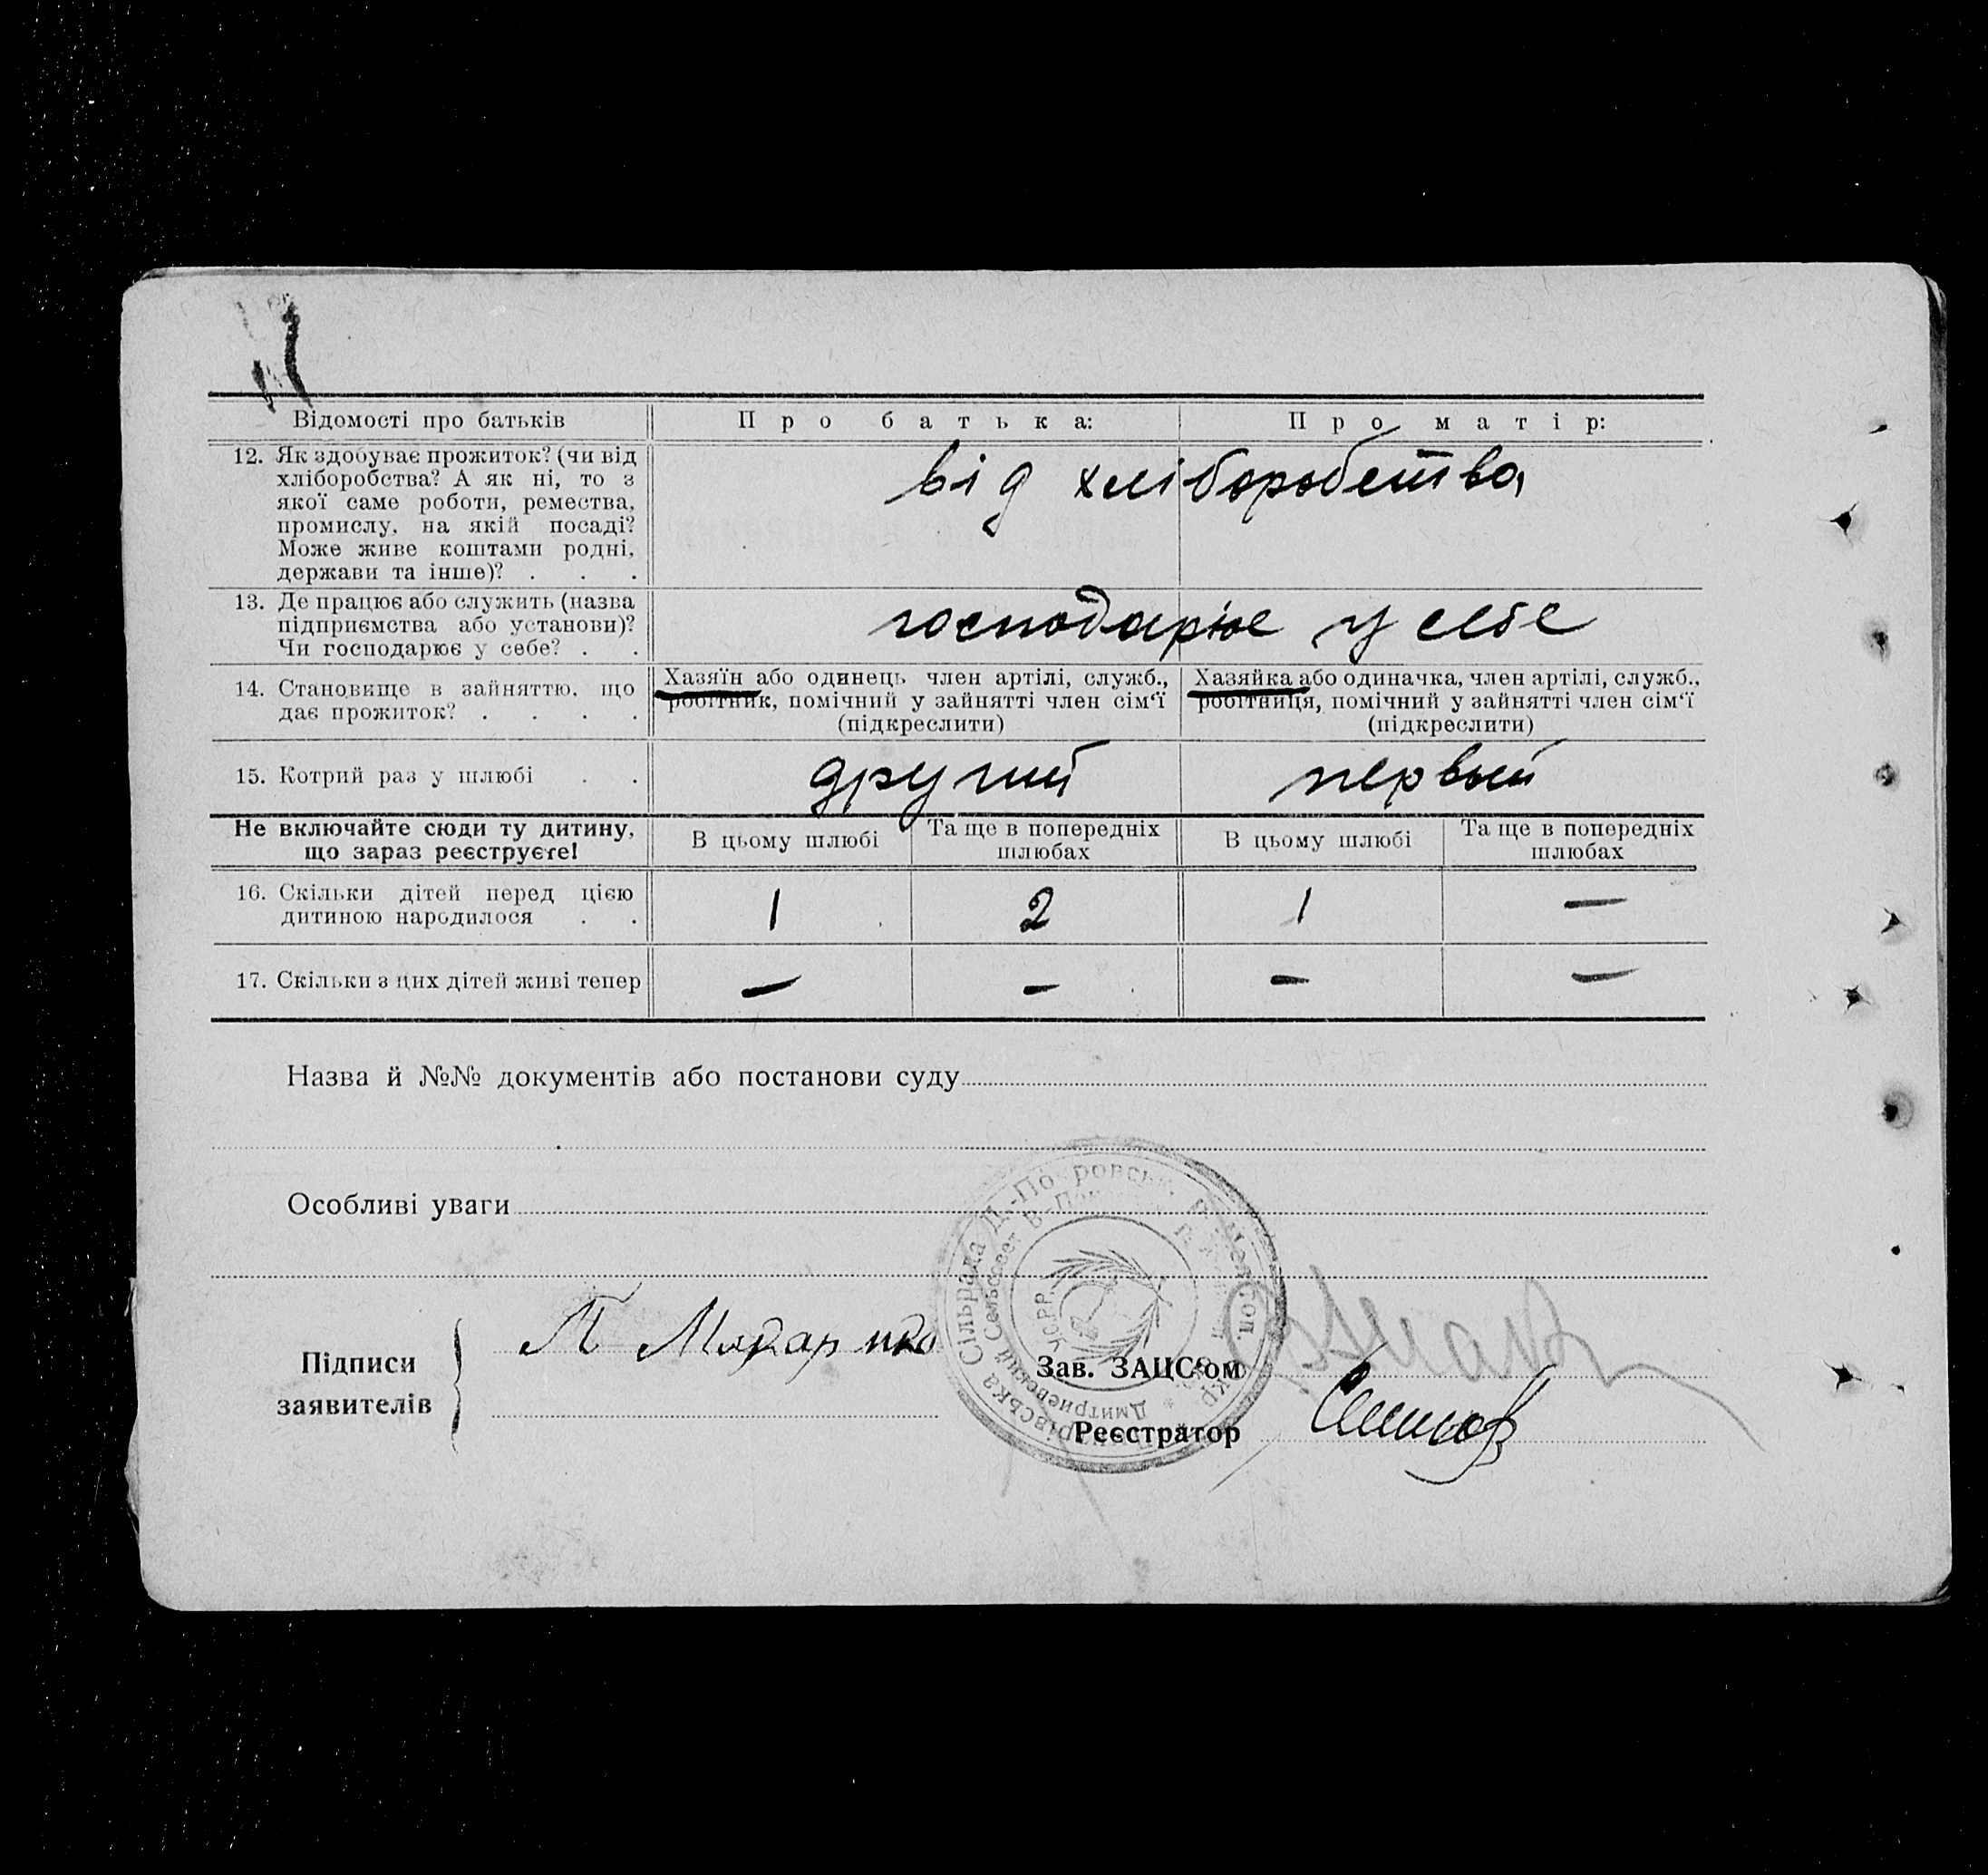 Відомості про батьків
Про батька:
Про матір:
12. Як здобуває прожиток? (чи від
хліборобства? А як ні, то з
якої саме роботи, ремества,
промислу, на якій посаді?
Може живе коштами родні,
держави та інше)? . . .
від хліборобства
13. Де працює або служить (назва
підприємства або установи)?
Чи господарює у себе? . .
господарює у себе
14. Становище в зайняттю, що
дає прожиток? . . . .
Хазяїн або одинець член артілі, служб.,
робітник, помічний у зайнятті член сім'ї
(підкреслити)
Хазяйка або одиначка, член артілі, служб.,
робітниця, помічний у зайнятті член сім'ї
(підкреслити)
15. Котрий раз у шлюбі . .
другий
первый
Не включайте сюди ту дитину,
що зараз реєструєте!
В цьому шлюбі
Та ще в попередніх
шлюбах
В цьому шлюбі
Та ще в попередніх
шлюбах
16. Скільки дітей перед цією
дитиною народилося . .
1
2
1
—
17. Скільки з цих дітей живі тепер
—
—
—
—
Назва й №№ документів або постанови суду
Особливі уваги
Підписи
заявителів
П
Зав. ЗАЦС'ом
Реєстратор
Сільрада
Дмитриевский Сельсовет
УСРР